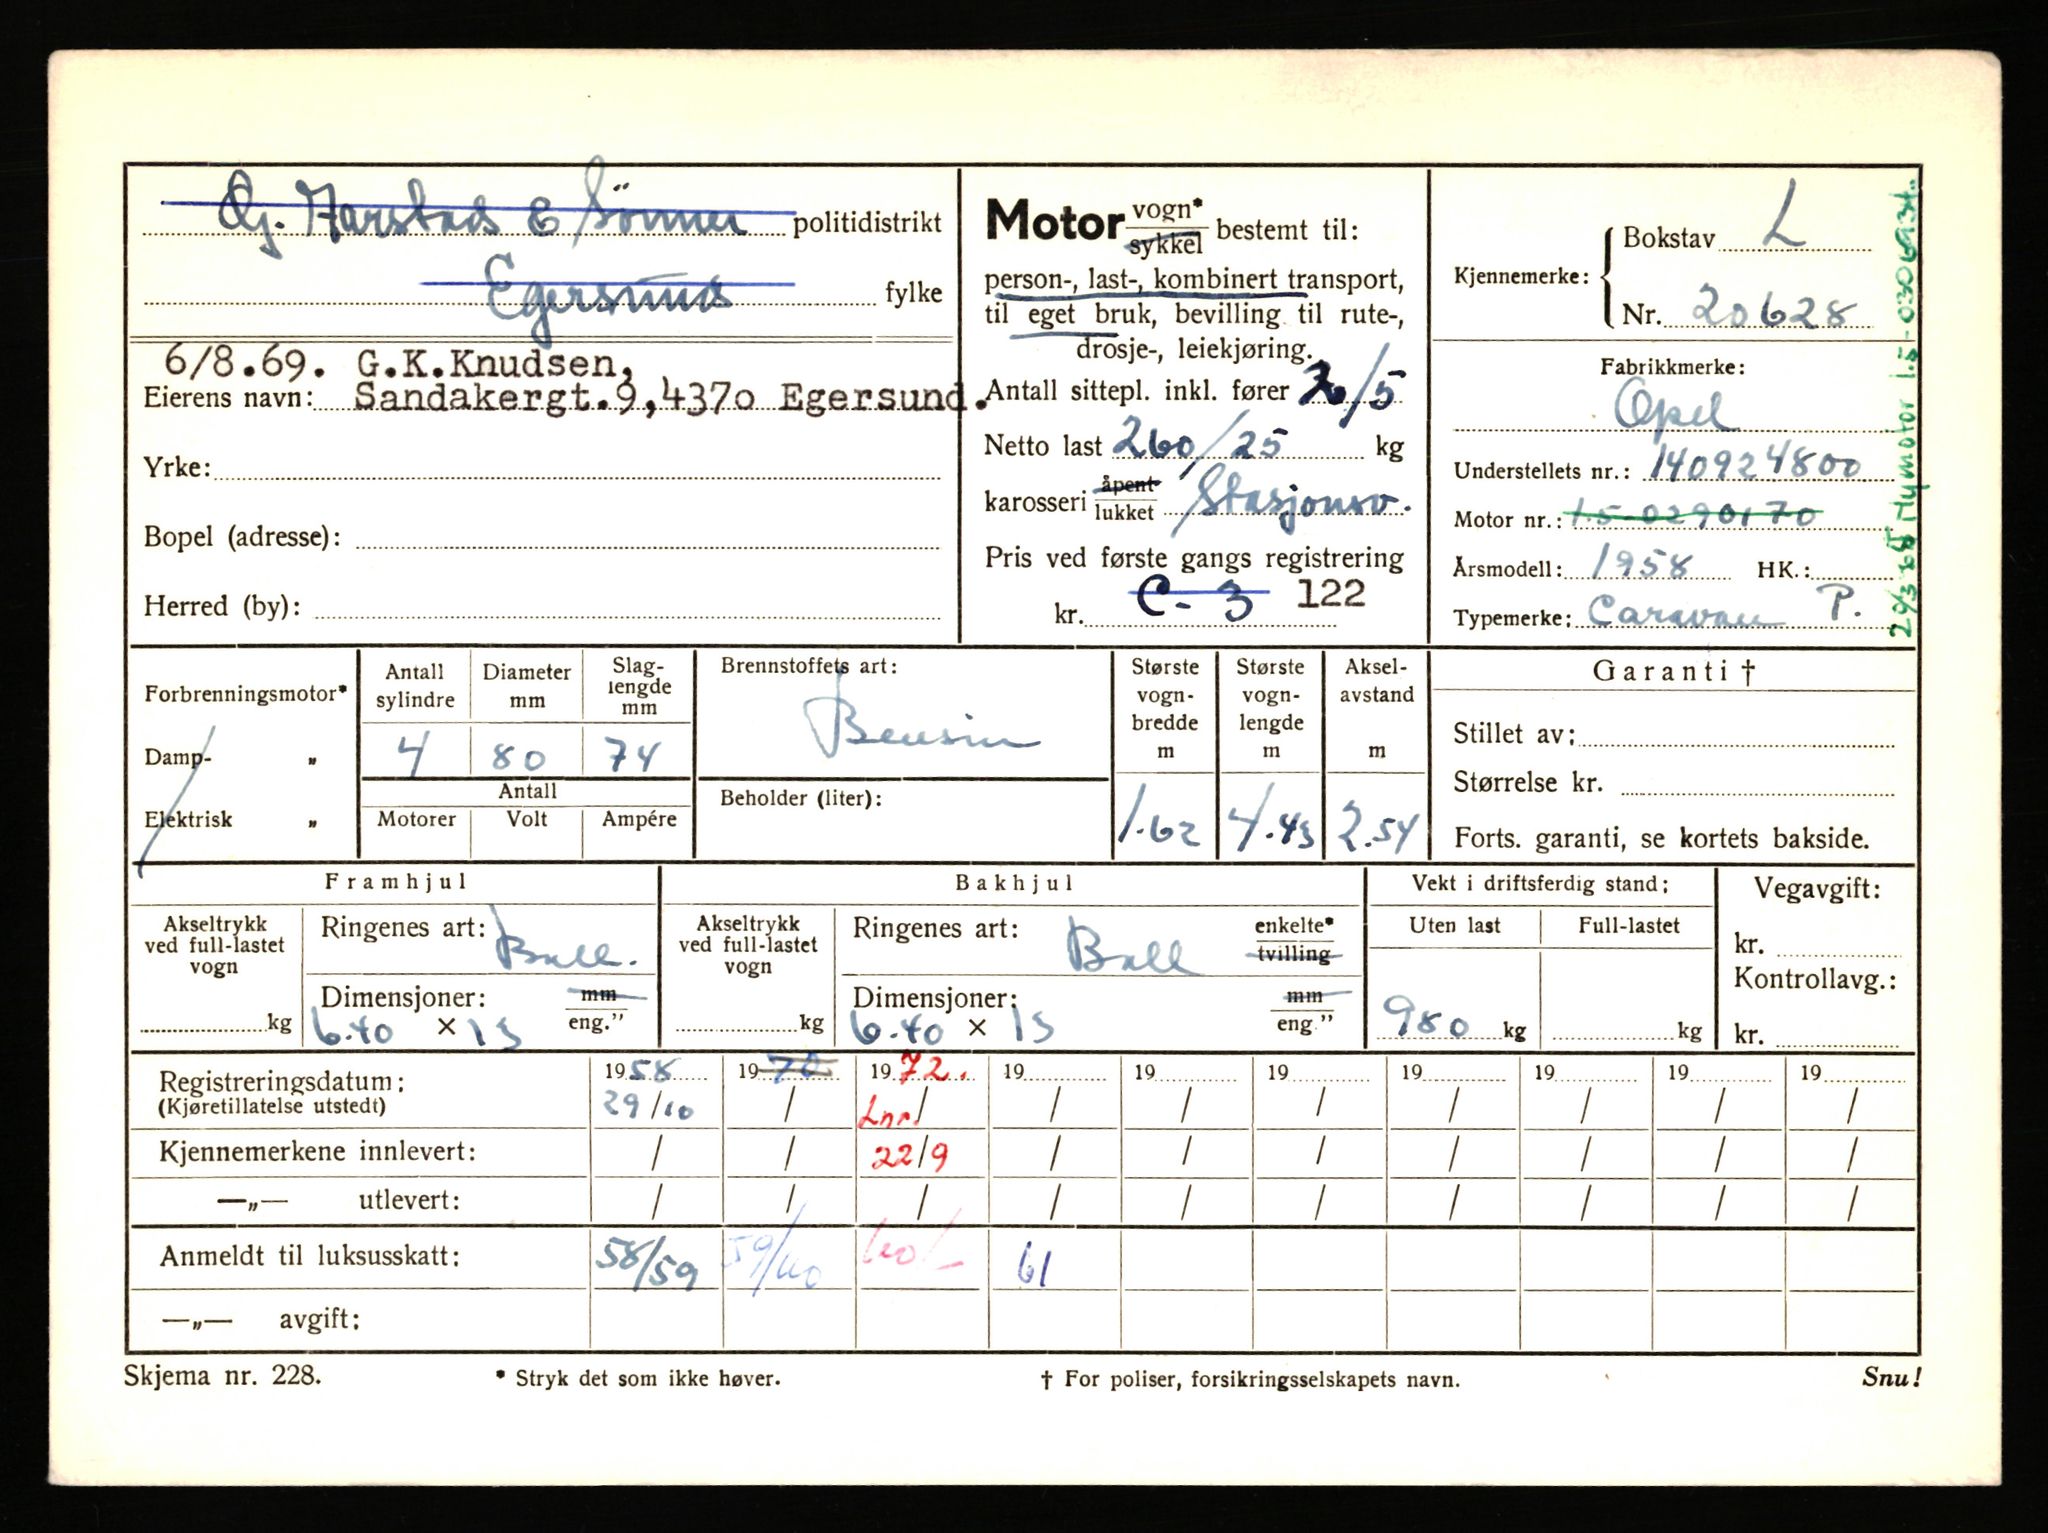 Gj. Aarstads & Sönner politidistrikt
Egersund fylke
6/8.69. G.K.Knudsen,
Eierens navn: Sandakergt.9,4370 Egersund.
Yrke:
Bopel (adresse):
Herred (by):
Motor vogn* sykkel bestemt til:
person-, last-, kombinert transport,
til eget bruk, bevilling til rute-,
drosje-, leiekjøring.
Antall sittepl. inkl. fører 2/5
Netto last 260/25 kg
karosseri åpent lukket Stasjonsv.
Pris ved første gangs registrering
kr. C-3 122
Kjennemerke: Bokstav L
Nr. 20628
Fabrikkmerke:
Opel
Understellets nr.: 140924800
Motor nr.: 1.5-0290170
Årsmodell: 1958 HK.:
Typemerke: Caravan P.
Ny motor 1.5-0306934.
Forbrenningsmotor*
Damp- „
Elektrisk „
Antall sylindre 4
Diameter mm 80
Slag-lengde mm 74
Antall
Motorer Volt Ampére
Brennstoffets art:
Bensin
Beholder (liter):
Største vogn-bredde m 1.62
Største vogn-lengde m 4.43
Aksel-avstand m 2.54
Garanti †
Stillet av:
Størrelse kr.
Forts. garanti, se kortets bakside.
Framhjul
Akseltrykk ved full-lastet vogn kg
Ringenes art: Ball.
Dimensjoner: mm eng.”
6.40 × 13
Bakhjul
Akseltrykk ved full-lastet vogn kg
Ringenes art: Ball enkelte* tvilling
Dimensjoner: mm eng.”
6.40 × 13
Vekt i driftsferdig stand:
Uten last Full-lastet
980 kg kg
Vegavgift:
kr.
Kontrollavg.:
kr.
Registreringsdatum: 1958 1970 1972. 19 19 19 19 19 19 19
(Kjøretillatelse utstedt) 29/10 / Lnr. / / / / / / / /
Kjennemerkene innlevert: / / 22/9 / / / / / / /
—„— utlevert: / / / / / / / / / /
Anmeldt til luksusskatt: 58/59 59/60 60/ 61
—„— avgift:
Skjema nr. 228. * Stryk det som ikke høver. † For poliser, forsikringsselskapets navn. Snu!